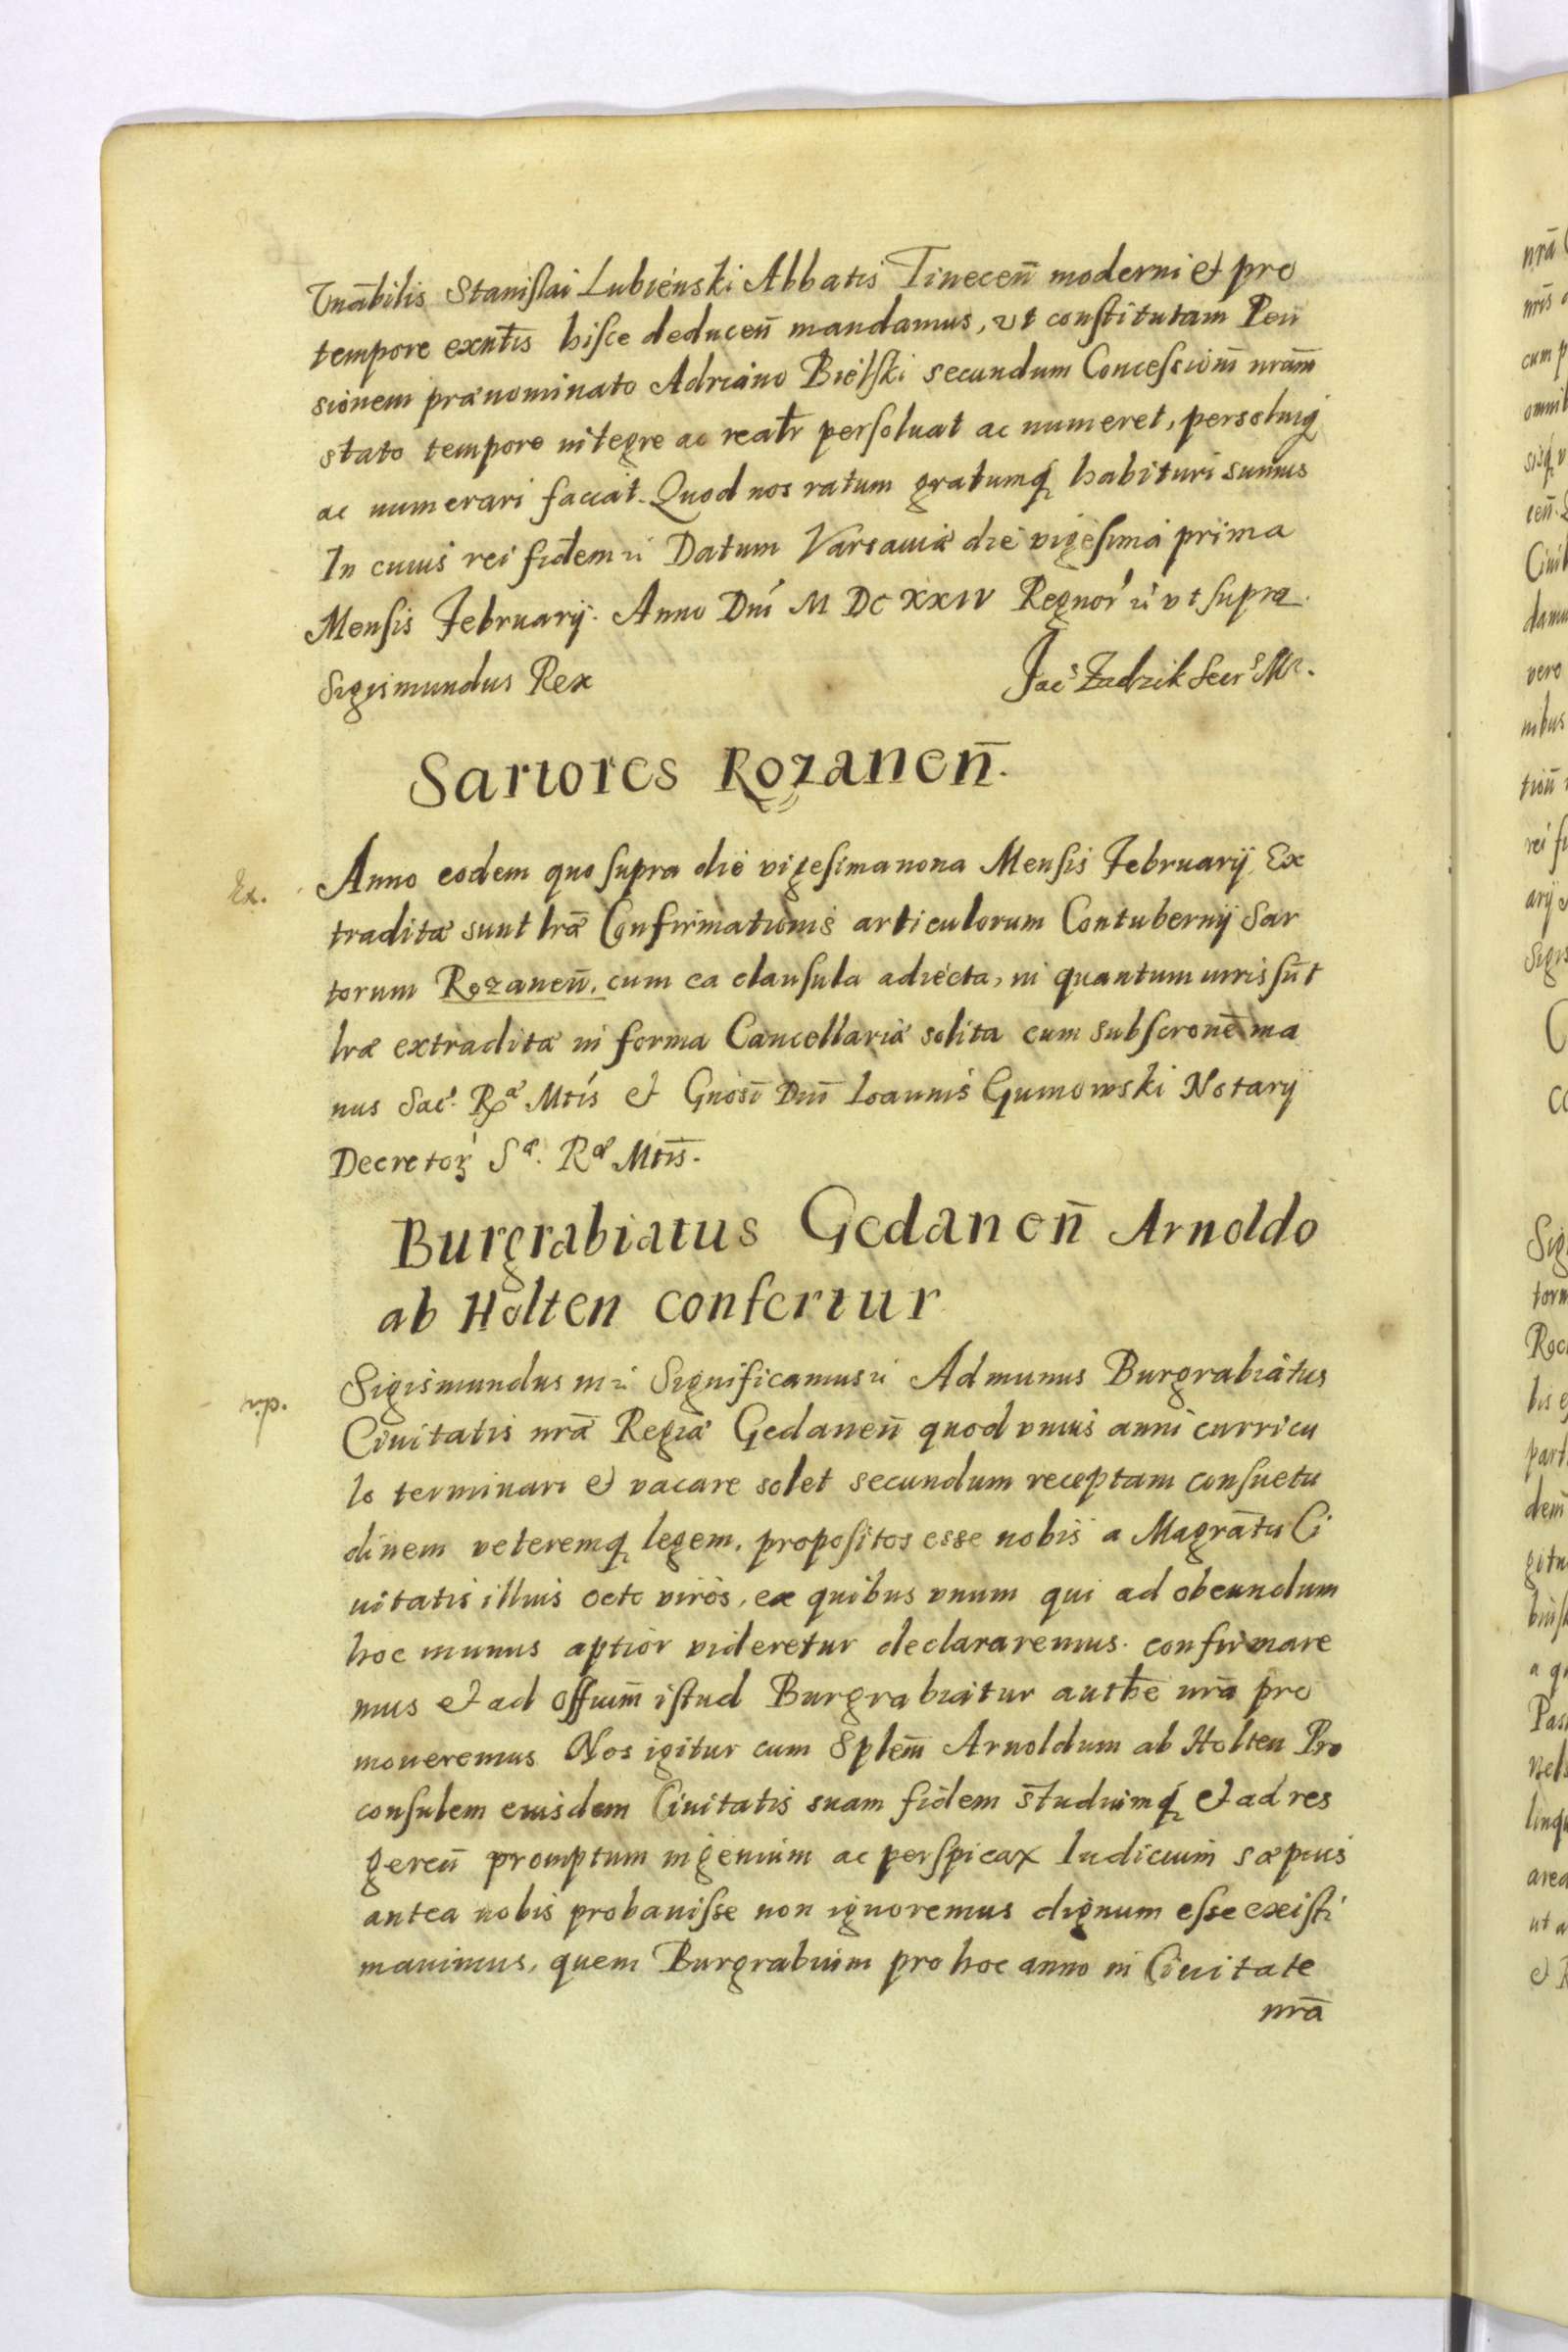 Vnābilis Stanislai Lubienski Abbatis Tinecen̄ moderni et pro
tempore exnt̄is hisce deducen̄ mandamus, vt constitutam Pen
sionem prænominato Adriano Bielski secundum Concessionm̄ nram̄
stato tempore integre ac realr̄ persoluat ac numeret, persoluiq́
ac numerari faciat. Quod nos ratum gratumq́ habituri sumus
In cuius rei fidem ii Datum Varsauiæ die vigesima prima
Mensis February. Anno Dni M DC XXIV Regnor' ii vt supra.
Sigismundus Rex Jac: Zadzik Secr: Mr.
Sartores Rozanen̄.
Ex. Anno eodem quo supra die vigesimanona Mensis February Ex
traditæ sunt lrǣ Confirmationis articulorum Contuberny Sar
torum Rozanen̄. cum ea clausula adiecta, in quantum iuris sūt
lræ extraditæ in forma Cancellariæ solita cum subscronē ma
nus Sac. Ræ Mtis et Gnosī Dnī Ioannis Gumowski Notary
Decretoŕ Sæ. Ræ Mtis̄.
Burgrabiatus Gedanen̄ Arnoldo
ab Holten confertur
Sigismundus iii ii Significamus ii Ad munus Burgrabiatus
Ciuitatis nrǣ Regiæ Gedanen̄ quod vnius anni curricu
lo terminari et vacare solet secundum receptam consuetu
dinem veteremq́ legem, propositos esse nobis a Magrātu Ci
uitatis illius octo viros, ex quibus vnum qui ad obeundum
hoc munus aptior videretur declararemus. confirmare
mus et ad Offium̄ istud Burgrabiatur auth̄e nrā pro
moueremus Nos igitur cum Splem̄ Arnoldum ab Holten Pro
consulem eiusdem Ciuitatis suam fidem studiumq́ et ad res
geren̄ promptum ingenium ac perspicax Iudicium sæpius
antea nobis probauisse non ignoremus dignum esse existi
mauimus, quem Burgrabium pro hoc anno in Ciuitate
nrā